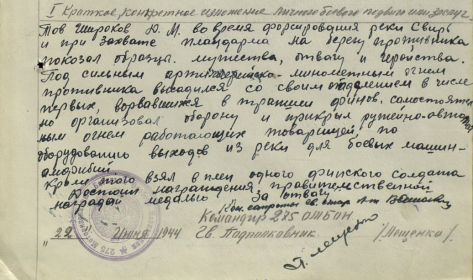 I Краткое, конкретное изложение личного боевого подвига или заслуг
Тов Широков Ю. М. во время форсирования реки Свирь
и при захвате плацдарма на берегу противника
показал образцы мужества, отваги и геройства.
Под сильным артиллерийско-минометным огнем
противника высадился со своим отделением в числе
первых, ворвавшихся в траншеи финнов, самостоятель
но организовал оборону и прикрыл ружейно-автомат
ным огнем работающих товарищей, по
оборудованию выходов из реки для боевых машин-
амфибий
Кроме этого взял в плен одного финского солдата
Достоин награждения правительственной
наградой медалью За отвагу
Командир 275 ОМБОН
"22" Июня 1944 Гв. Подполковник /Мещенко/.